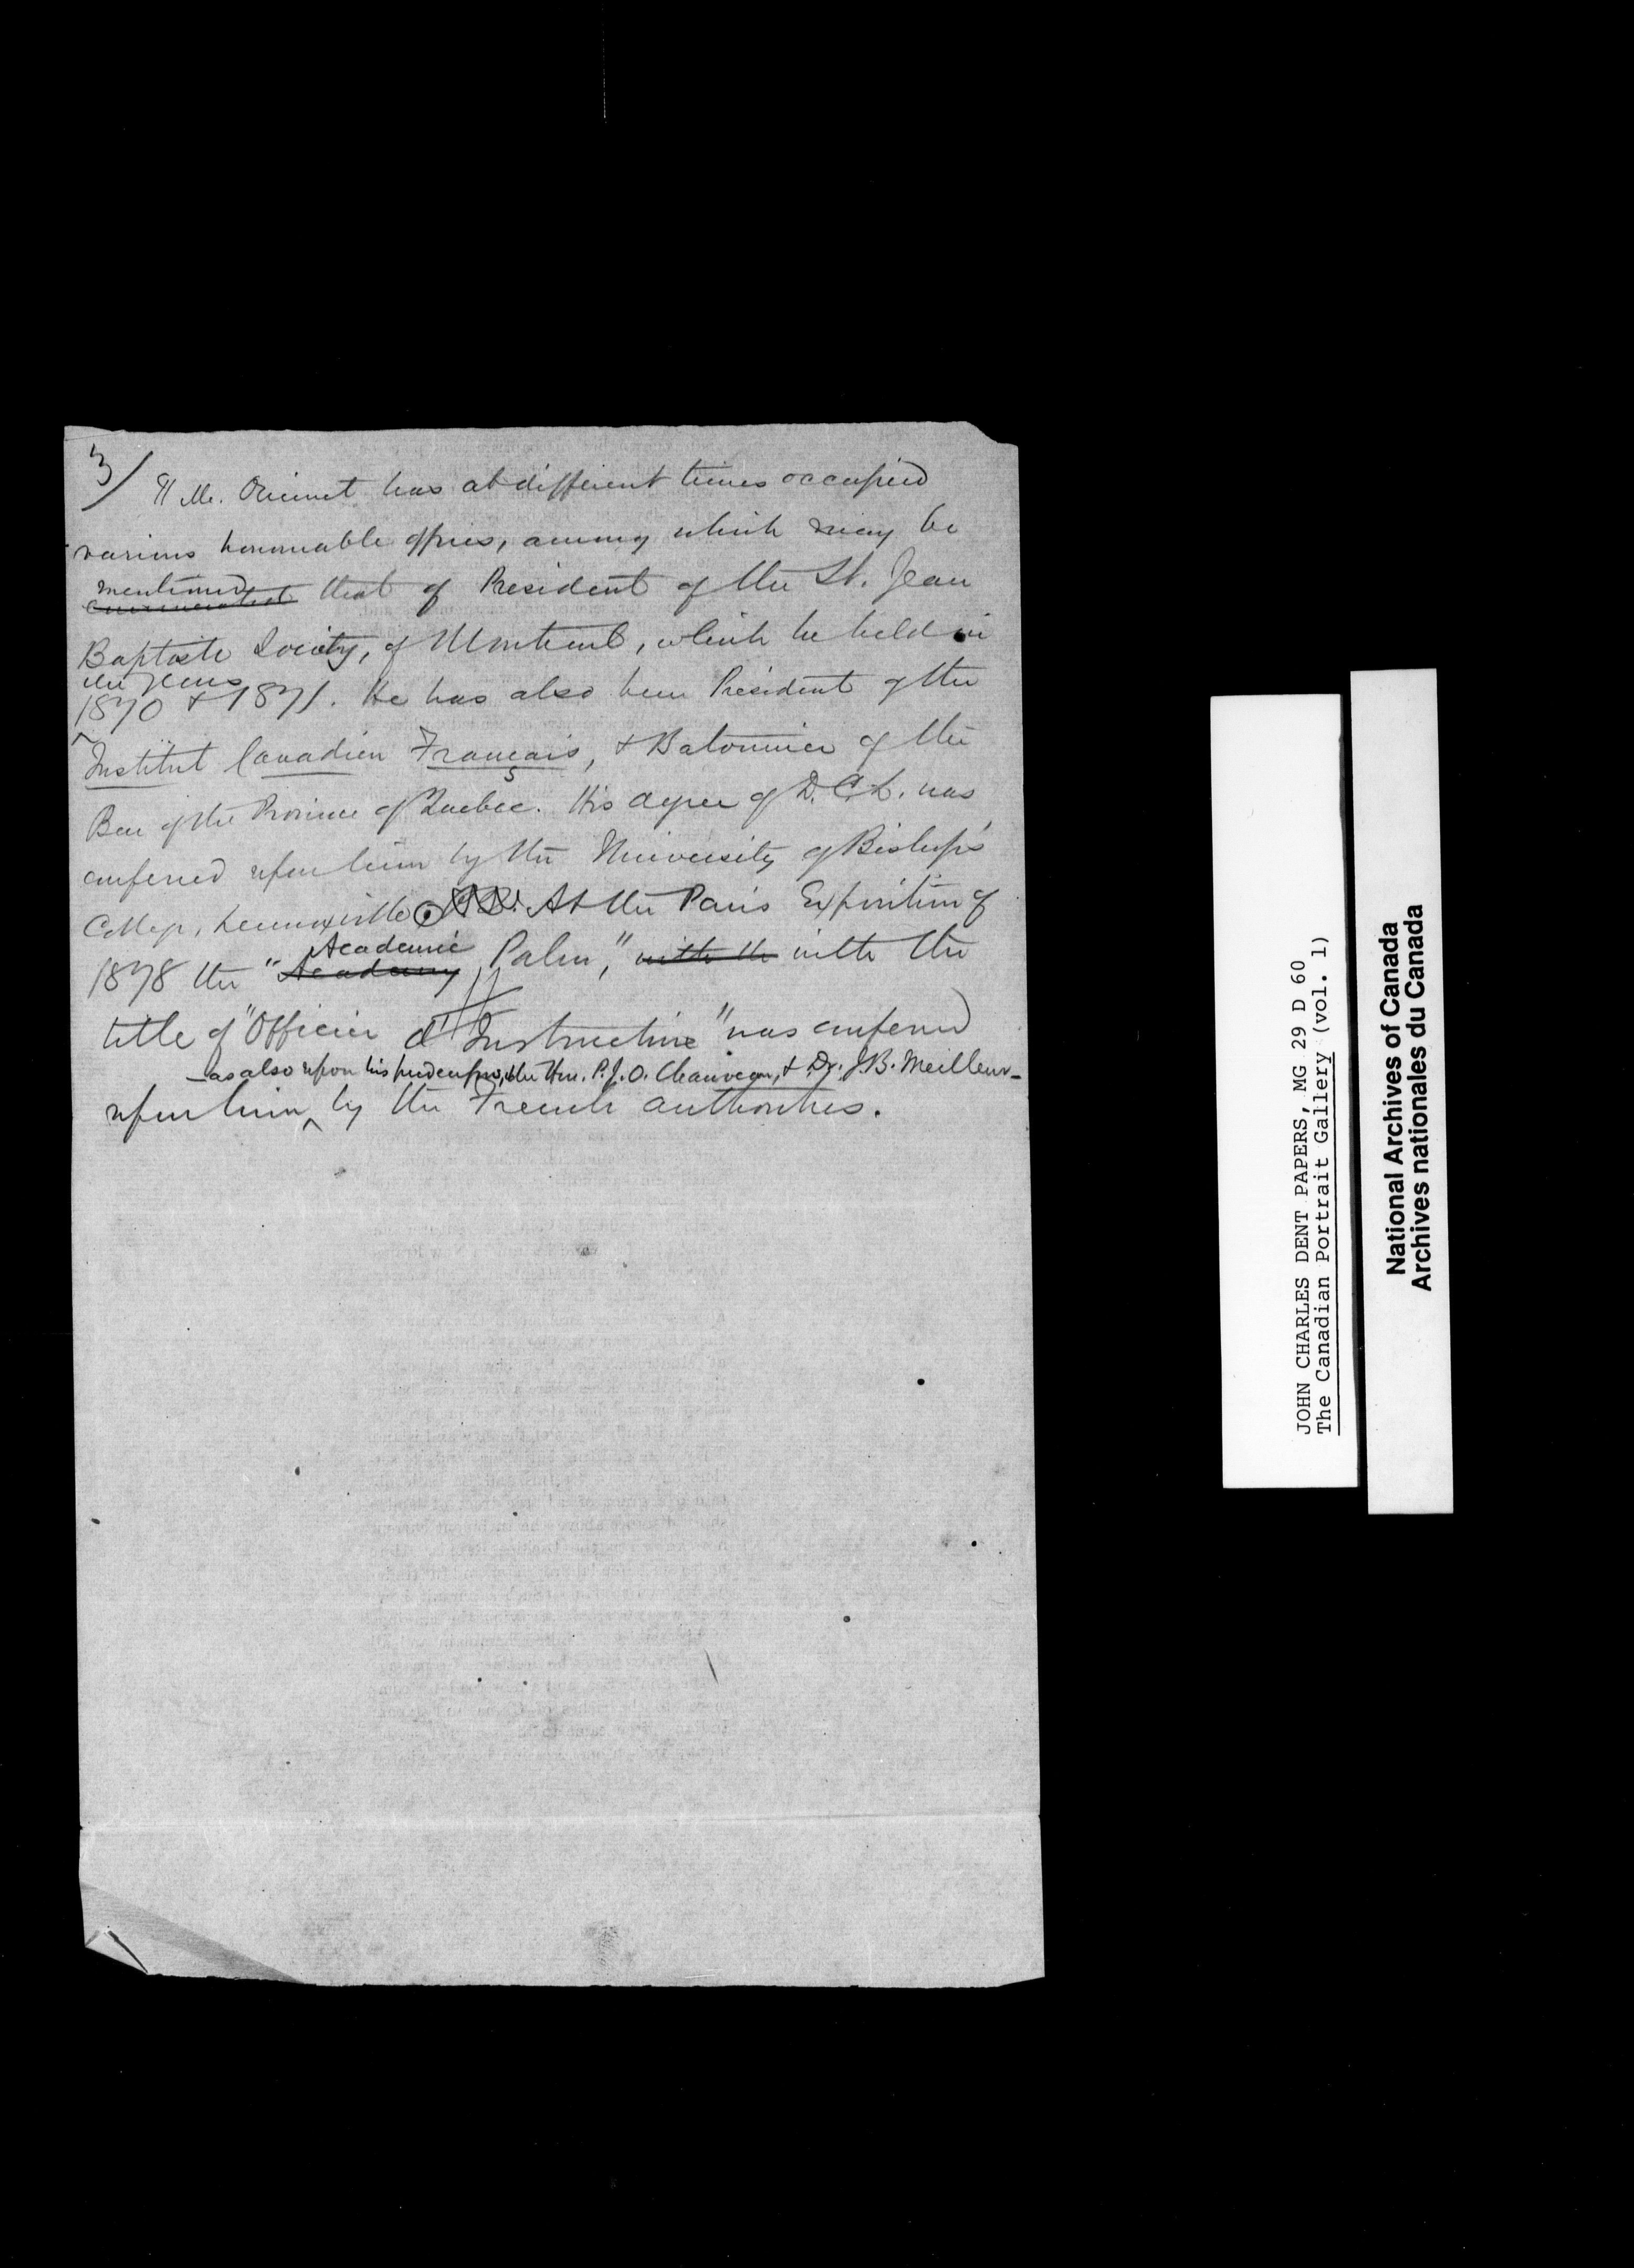 3/
¶ Mr. Ouimet has at different times occupied
various honourable offices, among which may be
mentioned
enumerated that of President of the St. Jean
Baptiste Society, of Montreal, which he held in
the years
1870 & 1871. He has also been President of the
Institut Canadien Français, & Batonnier of the
Bar of the Province of Quebec. His degree of D.C.L. was
conferred upon him by the University of Bishop's
College, Lennoxville. At the Paris Exposition of
Academic
1878 the "Academy Palm," with the with the
title of "Officier d'Instruction" was conferred
—as also upon his predecessors, the Hon. P.J.O. Chauveau, & Dr. J.B. Meilleur—
upon him ‸ by the French authorities.
JOHN CHARLES DENT PAPERS, MG 29 D 60
The Canadian Portrait Gallery (vol. 1)
National Archives of Canada
Archives nationales du Canada